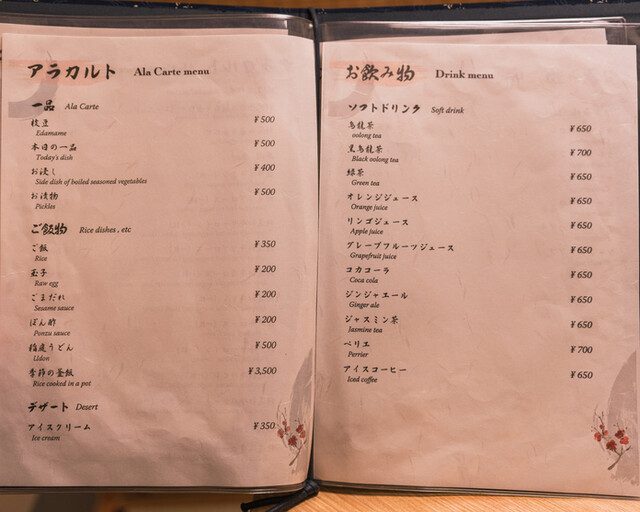 アラカルト Ala Carte menu
一品 Ala Carte
枝豆 ¥500
Edamame
本日の一品 ¥500
Today's dish
お浸し ¥400
Side dish of boiled seasoned vegetables
お漬物 ¥500
Pickles
ご飯物 Rice dishes , etc
ご飯 ¥350
Rice
玉子 ¥200
Raw egg
ごまだれ ¥200
Sesame sauce
ぽん酢 ¥200
Ponzu sauce
稲庭うどん ¥500
Udon
季節の釜飯 ¥3,500
Rice cooked in a pot
デザート Desert
アイスクリーム ¥350
Ice cream
お飲み物 Drink menu
ソフトドリンク Soft drink
烏龍茶 ¥650
oolong tea
黒烏龍茶 ¥700
Black oolong tea
緑茶 ¥650
Green tea
オレンジジュース ¥650
Orange juice
リンゴジュース ¥650
Apple juice
グレープフルーツジュース ¥650
Grapefruit juice
コカコーラ ¥650
Coca cola
ジンジャエール ¥650
Ginger ale
ジャスミン茶 ¥650
Jasmine tea
ペリエ ¥700
Perrier
アイスコーヒー ¥650
Iced coffee